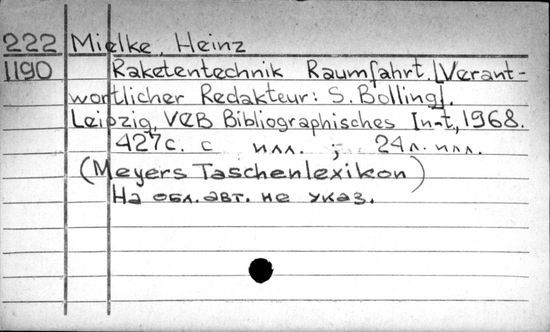 222 Mielke, Heinz
1190 Raketentechnik Raumfahrt. [Verant-
wortlicher Redakteur: S. Bolling].
Leipzig, VEB Bibliographisches In-t, 1968.
427с. с илл. ; 24л. илл.
(Meyers Taschenlexikon)
На обл. авт. не указ.